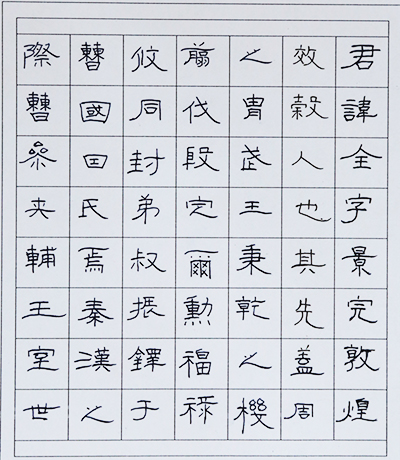 君諱全字景完敦煌
效穀人也其先蓋周
之胄武王秉乾之機
翦伐殷定爾勳福祿
攸同封弟叔振鐸于
曹國因氏焉秦漢之
際曹參夾輔王室世